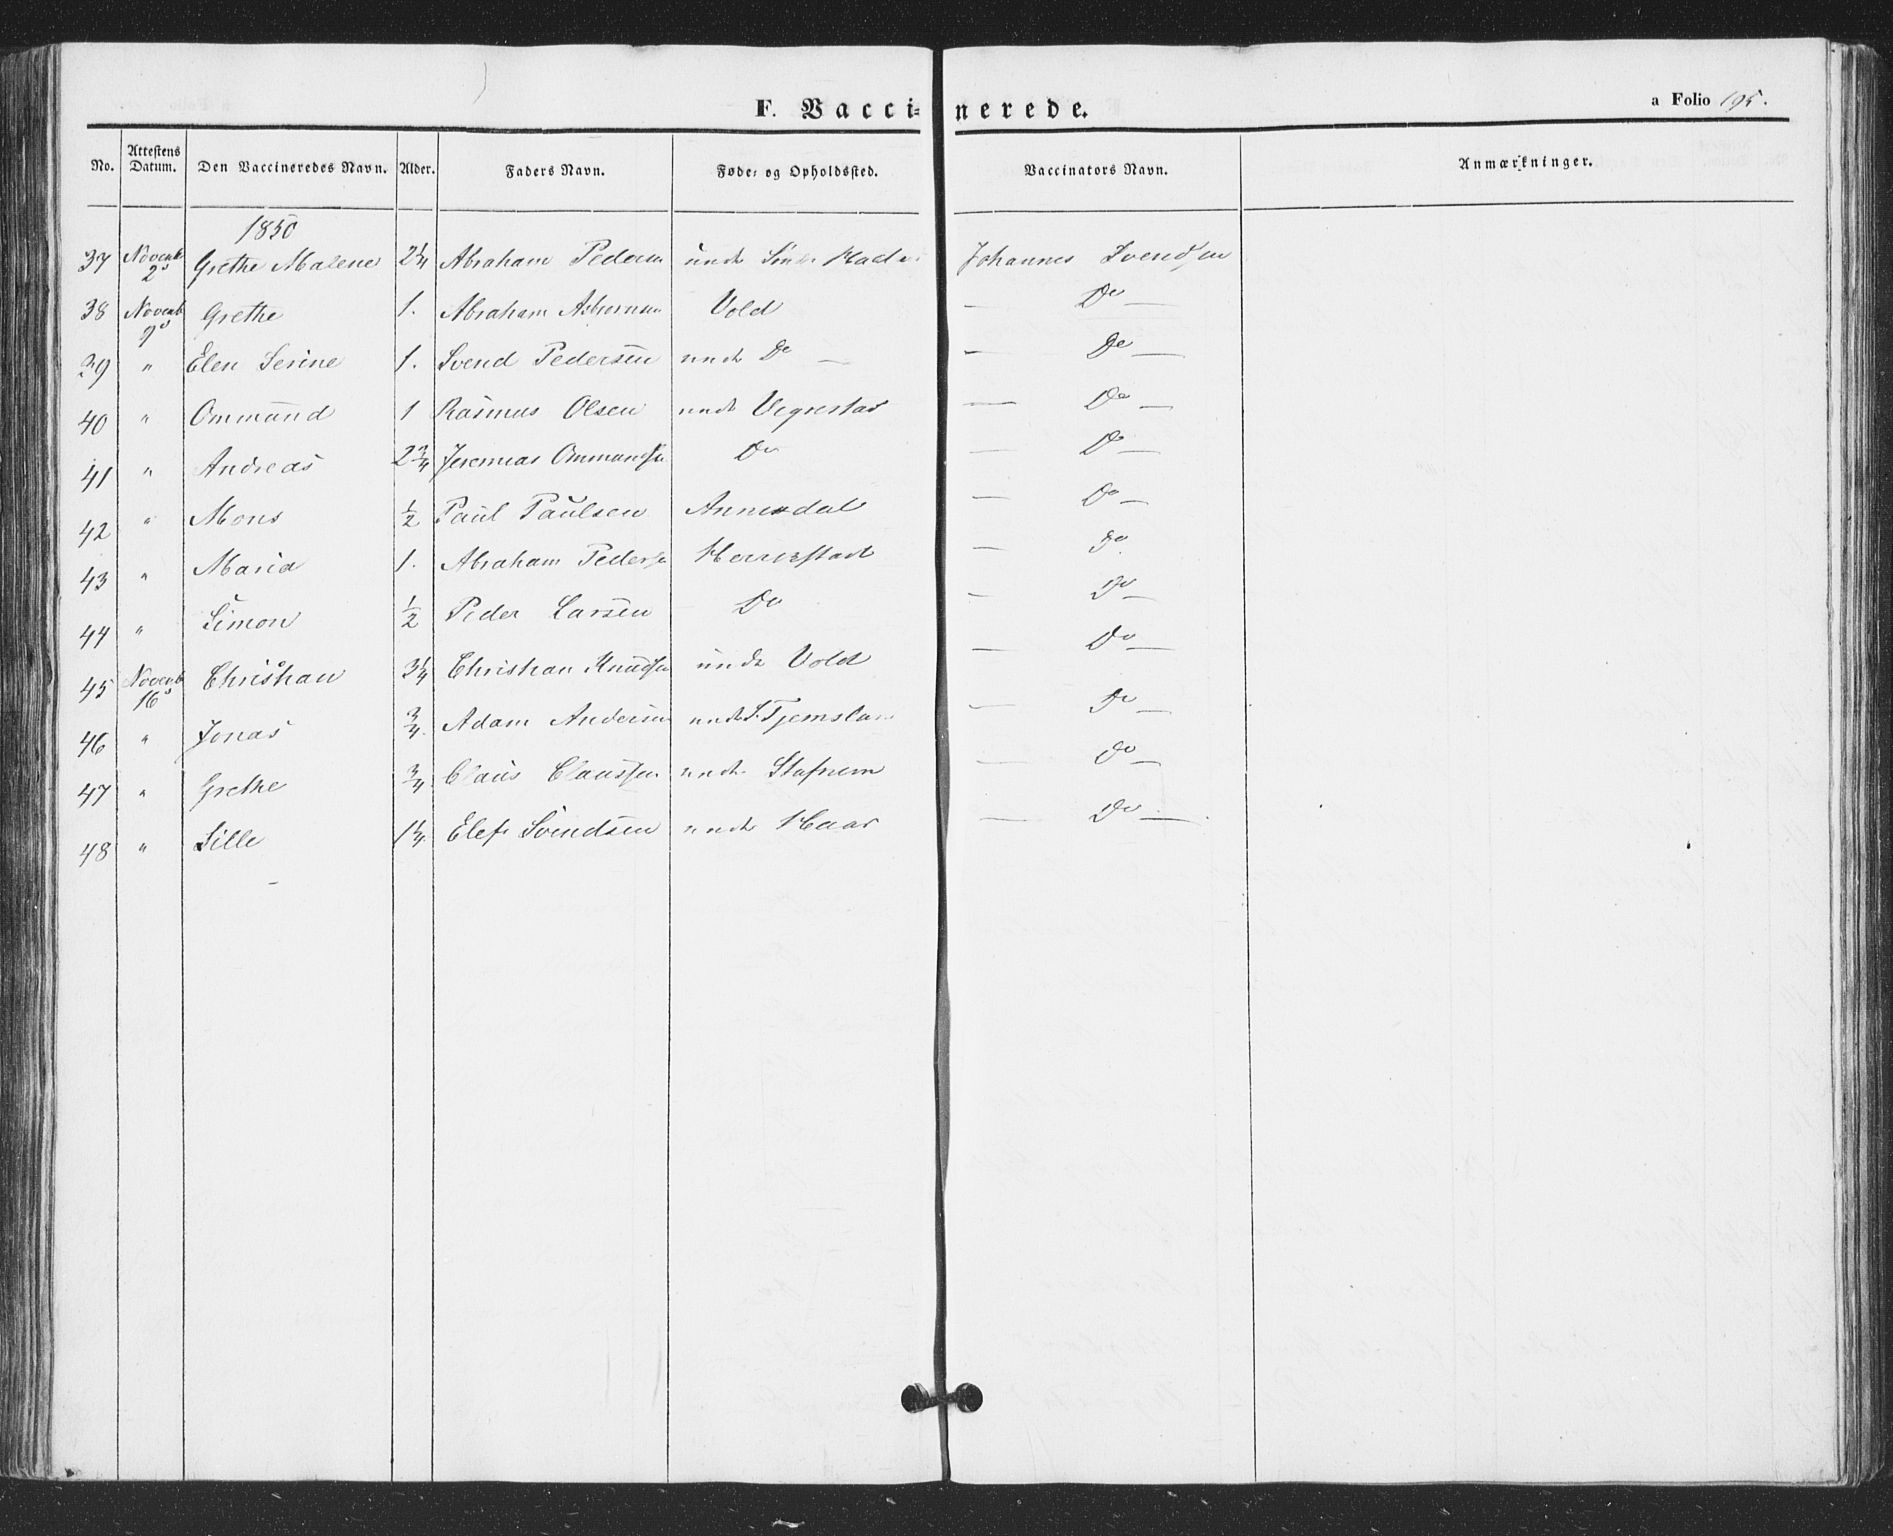 F. Vacci- nerede. a Folio 195.
No. Attestens Datum. Den Vaccineredes Navn. Alder. Faders Navn. Føde- og Opholdssted. Vaccinators Navn. Anmærkninger.
1850
37 Novemb 2d Grethe Malene 2 1/4 Abraham Pedersen unde Johannes Svendsen
38 Novemb 9d Grethe 1. Abraham Asbornsen Vold — Do —
39 " Elen Serine 1. Svend Pedersen unde Do — — Do —
40 " Ommund 1 Rasmus Olsen unde Vigrestad — Do —
41 " Andreas 2 3/4 Jeremias Ommundsen Do — Do —
42 " Mons 1/2 Paul Paulsen Annisdal — Do —
43 " Maria 1. Abraham Pedersen Herrestad — Do
44 " Simon 1/2 Peder Larsen Do — Do —
45 Novemb 16d Christian 3 1/4 Christian Knudsen unde Vold — Do —
46 " Jonas 3/4. Adam Andersen unde S. Tjemsland — Do —
47 " Grethe 3/4 Claus Claussen unde Stafnem — Do —
48 " Sille 1 1/4. Elef Svendsen unde Haar — Do —